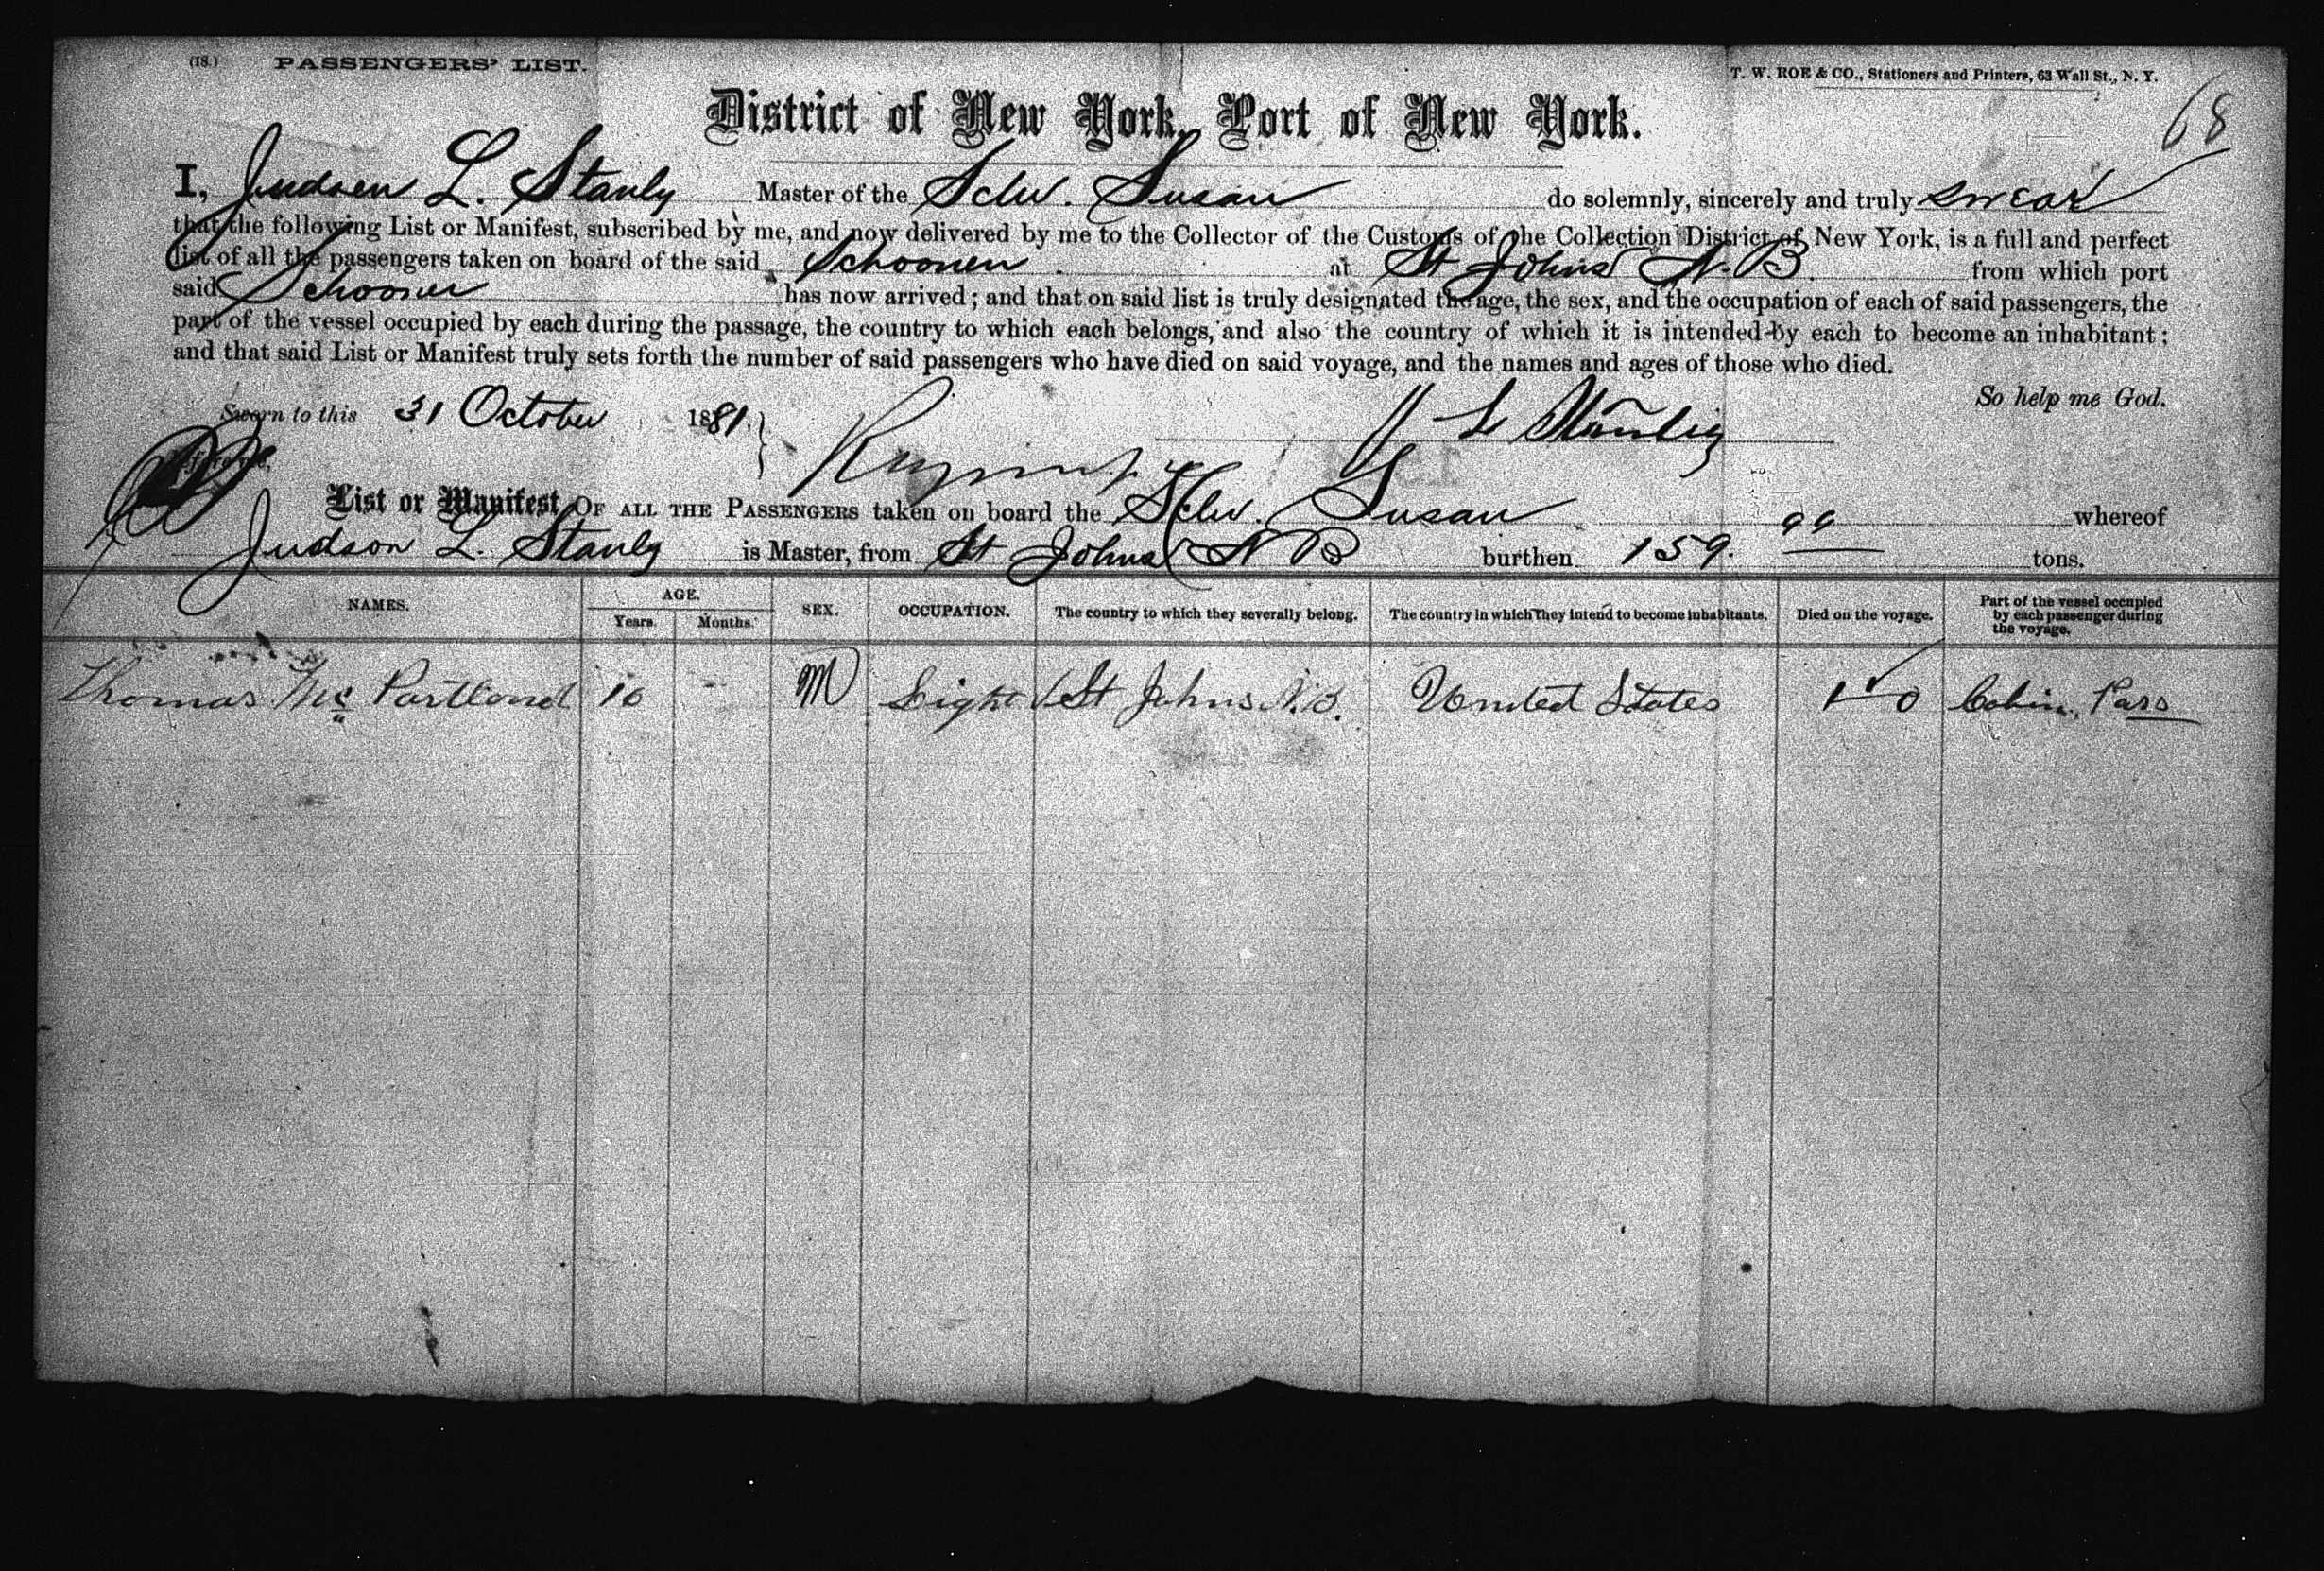 (18.) PASSENGERS' LIST.
T. W. ROE & CO., Stationers and Printers, 63 Wall St., N. Y.
68
District of New York, Port of New York.
I, Judson L. Stanly Master of the Schr. Susan do solemnly, sincerely and truly swear
that the following List or Manifest, subscribed by me, and now delivered by me to the Collector of the Customs of the Collection District of New York, is a full and perfect
list of all the passengers taken on board of the said Schooner at St Johns N. B. from which port
said Schooner has now arrived; and that on said list is truly designated the age, the sex, and the occupation of each of said passengers, the
part of the vessel occupied by each during the passage, the country to which each belongs, and also the country of which it is intended by each to become an inhabitant;
and that said List or Manifest truly sets forth the number of said passengers who have died on said voyage, and the names and ages of those who died.
So help me God.
Sworn to this 31 October 1881.
J L Stanly
List or Manifest OF ALL THE PASSENGERS taken on board the Schr. Susan whereof
Judson L. Stanly is Master, from St Johns N B burthen 159. 99 tons.
NAMES. AGE. Years. Months. SEX. OCCUPATION. The country to which they severally belong. The country in which they intend to become inhabitants. Died on the voyage. Part of the vessel occupied by each passenger during the voyage.
Thomas Mc Partland 10 M St Johns N.B. United States 0 Cabin Pass